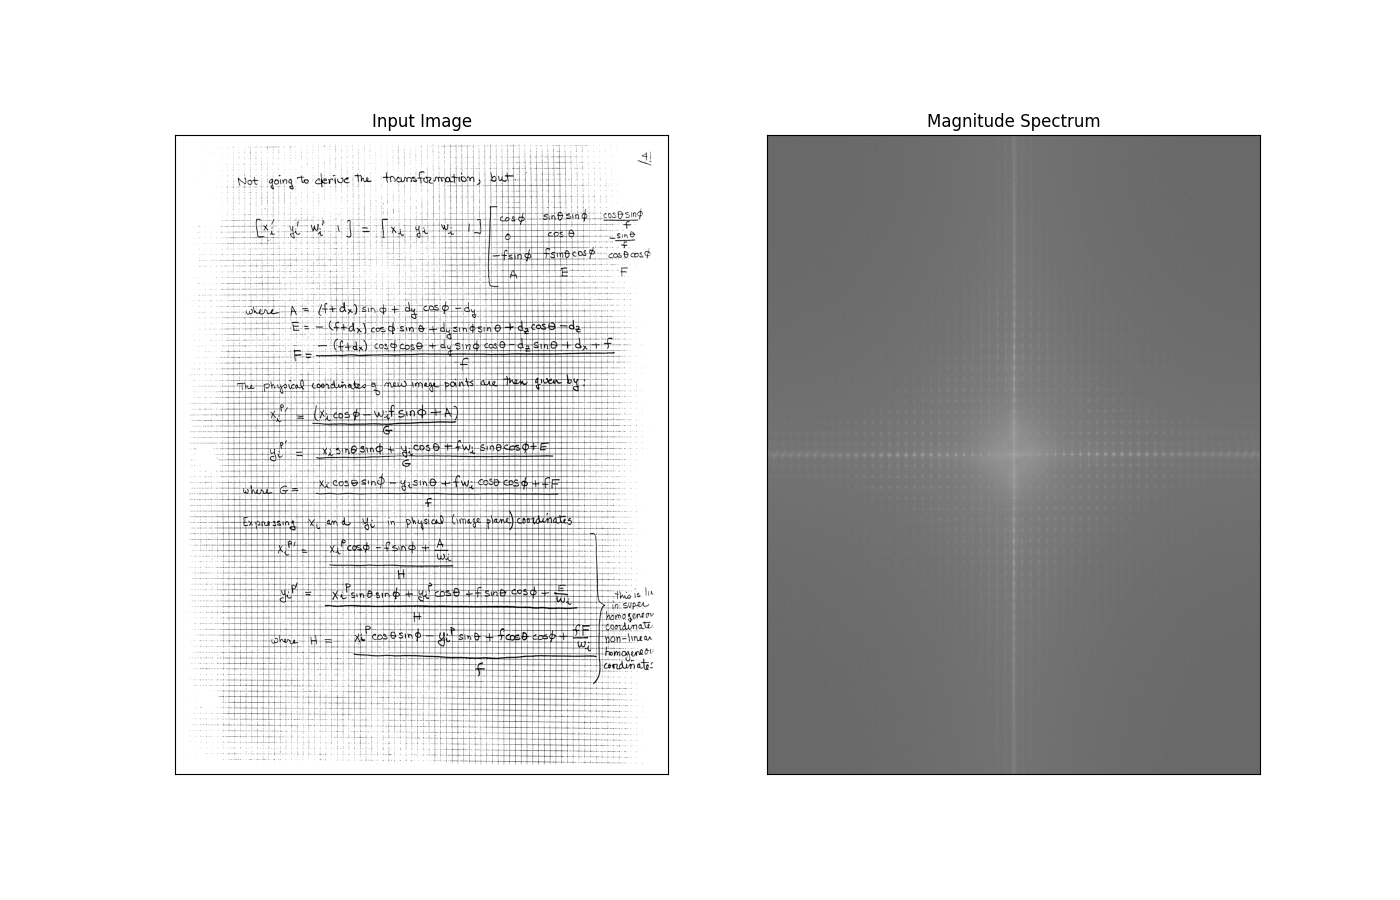 Input Image
4
Not going to derive the transformation, but.
[x_i' y_i' w_i' 1] = [x_i y_i w_i 1] [cosφ sinθ sinφ cosθ sinφ/f
0 cosθ -sinθ/f
-f sinφ f sinθ cosφ cosθ cosφ
A E F
where A = (f+d_x) sin φ + d_y cos φ - d_y
E = - (f+d_x) cos φ sin θ + d_y sin φ sin θ + d_z cos θ - d_z
F = - (f+d_x) cosφ cosθ + d_y sinφ cosθ - d_z sinθ + d_x + f / f
The physical coordinates of new image points are then given by
x_i^p' = (x_i cosφ - w_i f sinφ + A) / G
y_i^p' = x_i sinθ sinφ + y_i cosθ + f w_i sinθ cosφ + E / G
where G = x_i cosθ sinφ - y_i sinθ + f w_i cosθ cosφ + fF / f
Expressing x_i and y_i in physical (image plane) coordinates
x_i^p' = x_i^p cosφ - f sinφ + A/w_i / H
y_i^p' = x_i^p sinθ sinφ + y_i^p cosθ + f sinθ cosφ + E/w_i / H
where H = x_i^p cosθ sinφ - y_i^p sinθ + f cosθ cosφ + fF/w_i / f
this is li
in super
homogeneou
coordinate
non-linear
homogeneou
coordinate
Magnitude Spectrum